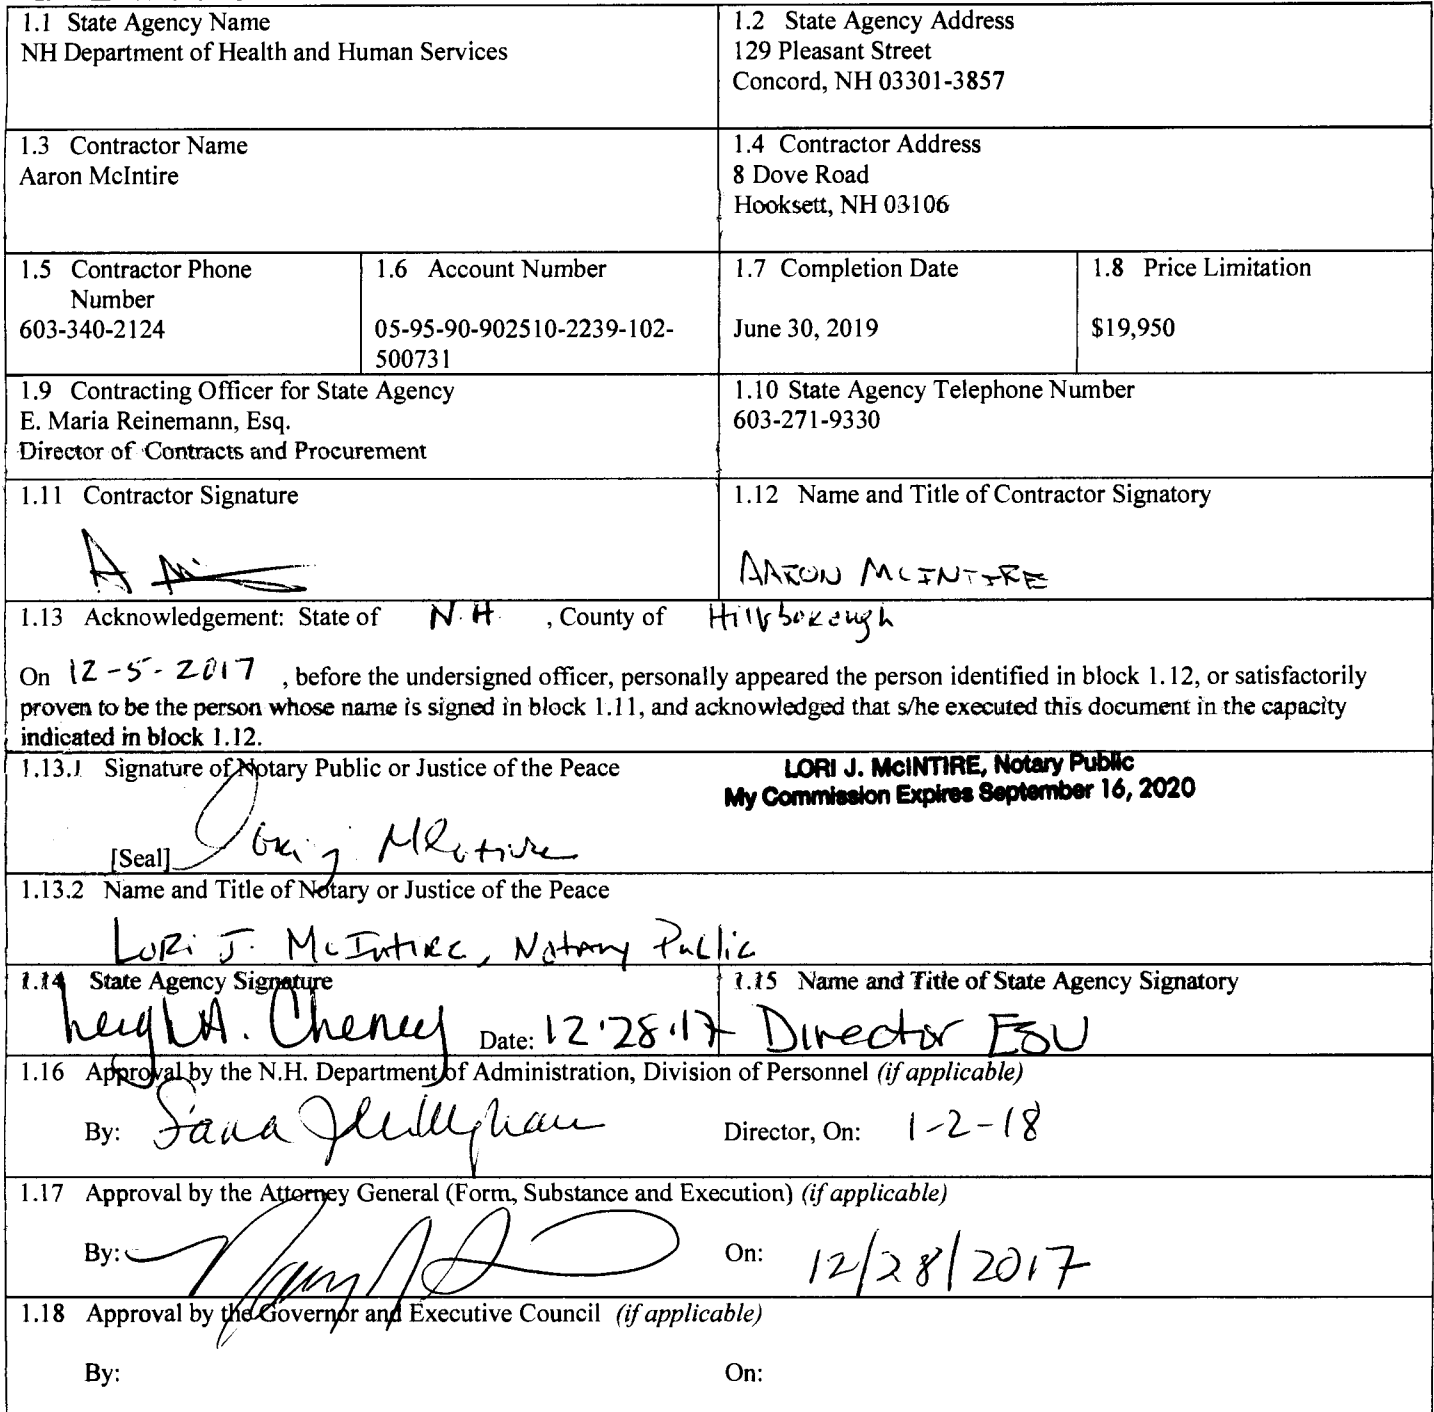 1.1 State Agency Name
NH Department of Health and Human Services
1.2 State Agency Address
129 Pleasant Street
Concord, NH 03301-3857
1.3 Contractor Name
Aaron McIntire
1.4 Contractor Address
8 Dove Road
Hooksett, NH 03106
1.5 Contractor Phone
Number
603-340-2124
1.6 Account Number
05-95-90-902510-2239-102-
500731
1.7 Completion Date
June 30, 2019
1.8 Price Limitation
$19,950
1.9 Contracting Officer for State Agency
E. Maria Reinemann, Esq.
Director of Contracts and Procurement
1.10 State Agency Telephone Number
603-271-9330
1.11 Contractor Signature
1.12 Name and Title of Contractor Signatory
AARON MCINTIRE
1.13 Acknowledgement: State of N.H. , County of Hillsborough
On 12-5-2017 , before the undersigned officer, personally appeared the person identified in block 1.12, or satisfactorily
proven to be the person whose name is signed in block 1.11, and acknowledged that s/he executed this document in the capacity
indicated in block 1.12.
1.13.1 Signature of Notary Public or Justice of the Peace
LORI J. McINTIRE, Notary Public
My Commission Expires September 16, 2020
[Seal] Lori J McIntire
1.13.2 Name and Title of Notary or Justice of the Peace
Lori J. McIntire, Notary Public
1.14 State Agency Signature
Leigh A. Cheney Date: 12.28.17
1.15 Name and Title of State Agency Signatory
Director ESU
1.16 Approval by the N.H. Department of Administration, Division of Personnel (if applicable)
By: Director, On: 1-2-18
1.17 Approval by the Attorney General (Form, Substance and Execution) (if applicable)
By: On: 12/28/2017
1.18 Approval by the Governor and Executive Council (if applicable)
By: On: